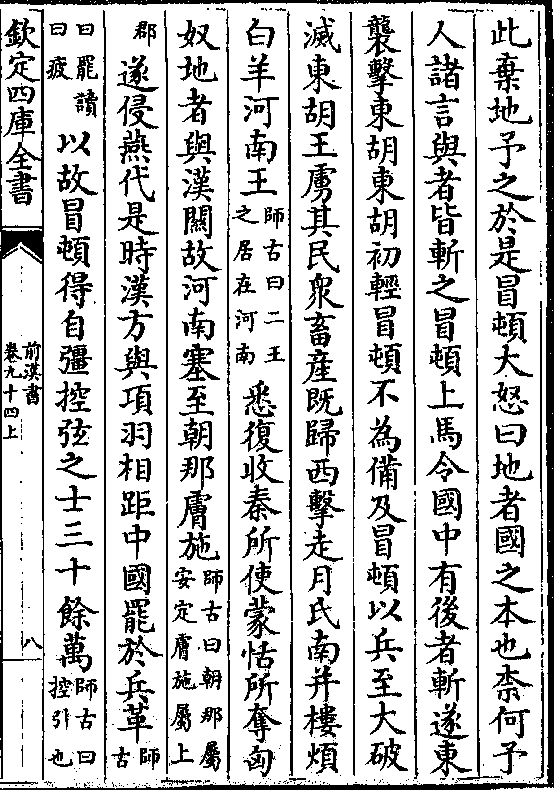 此棄地予之於是冒頓大怒曰地者國之本也柰何予
人諸言與者皆斬之冒頓上馬令國中有後者斬遂東
襲擊東胡東胡初輕冒頓不為備及冒頓以兵至大破
滅東胡王虜其民衆畜產既歸西擊走月氏南并樓煩
白羊河南王師古曰二王之居在河南悉復收秦所使蒙恬所奪匈
奴地者與漢關故河南塞至朝那膚施師古曰朝那屬安定膚施屬上
郡遂侵燕代是時漢方與項羽相距中國罷於兵革師古
曰罷讀曰疲以故冒頓得自彊控弦之士三十餘萬師古曰控引也
欽定四庫全書
前漢書
卷九十四上
八